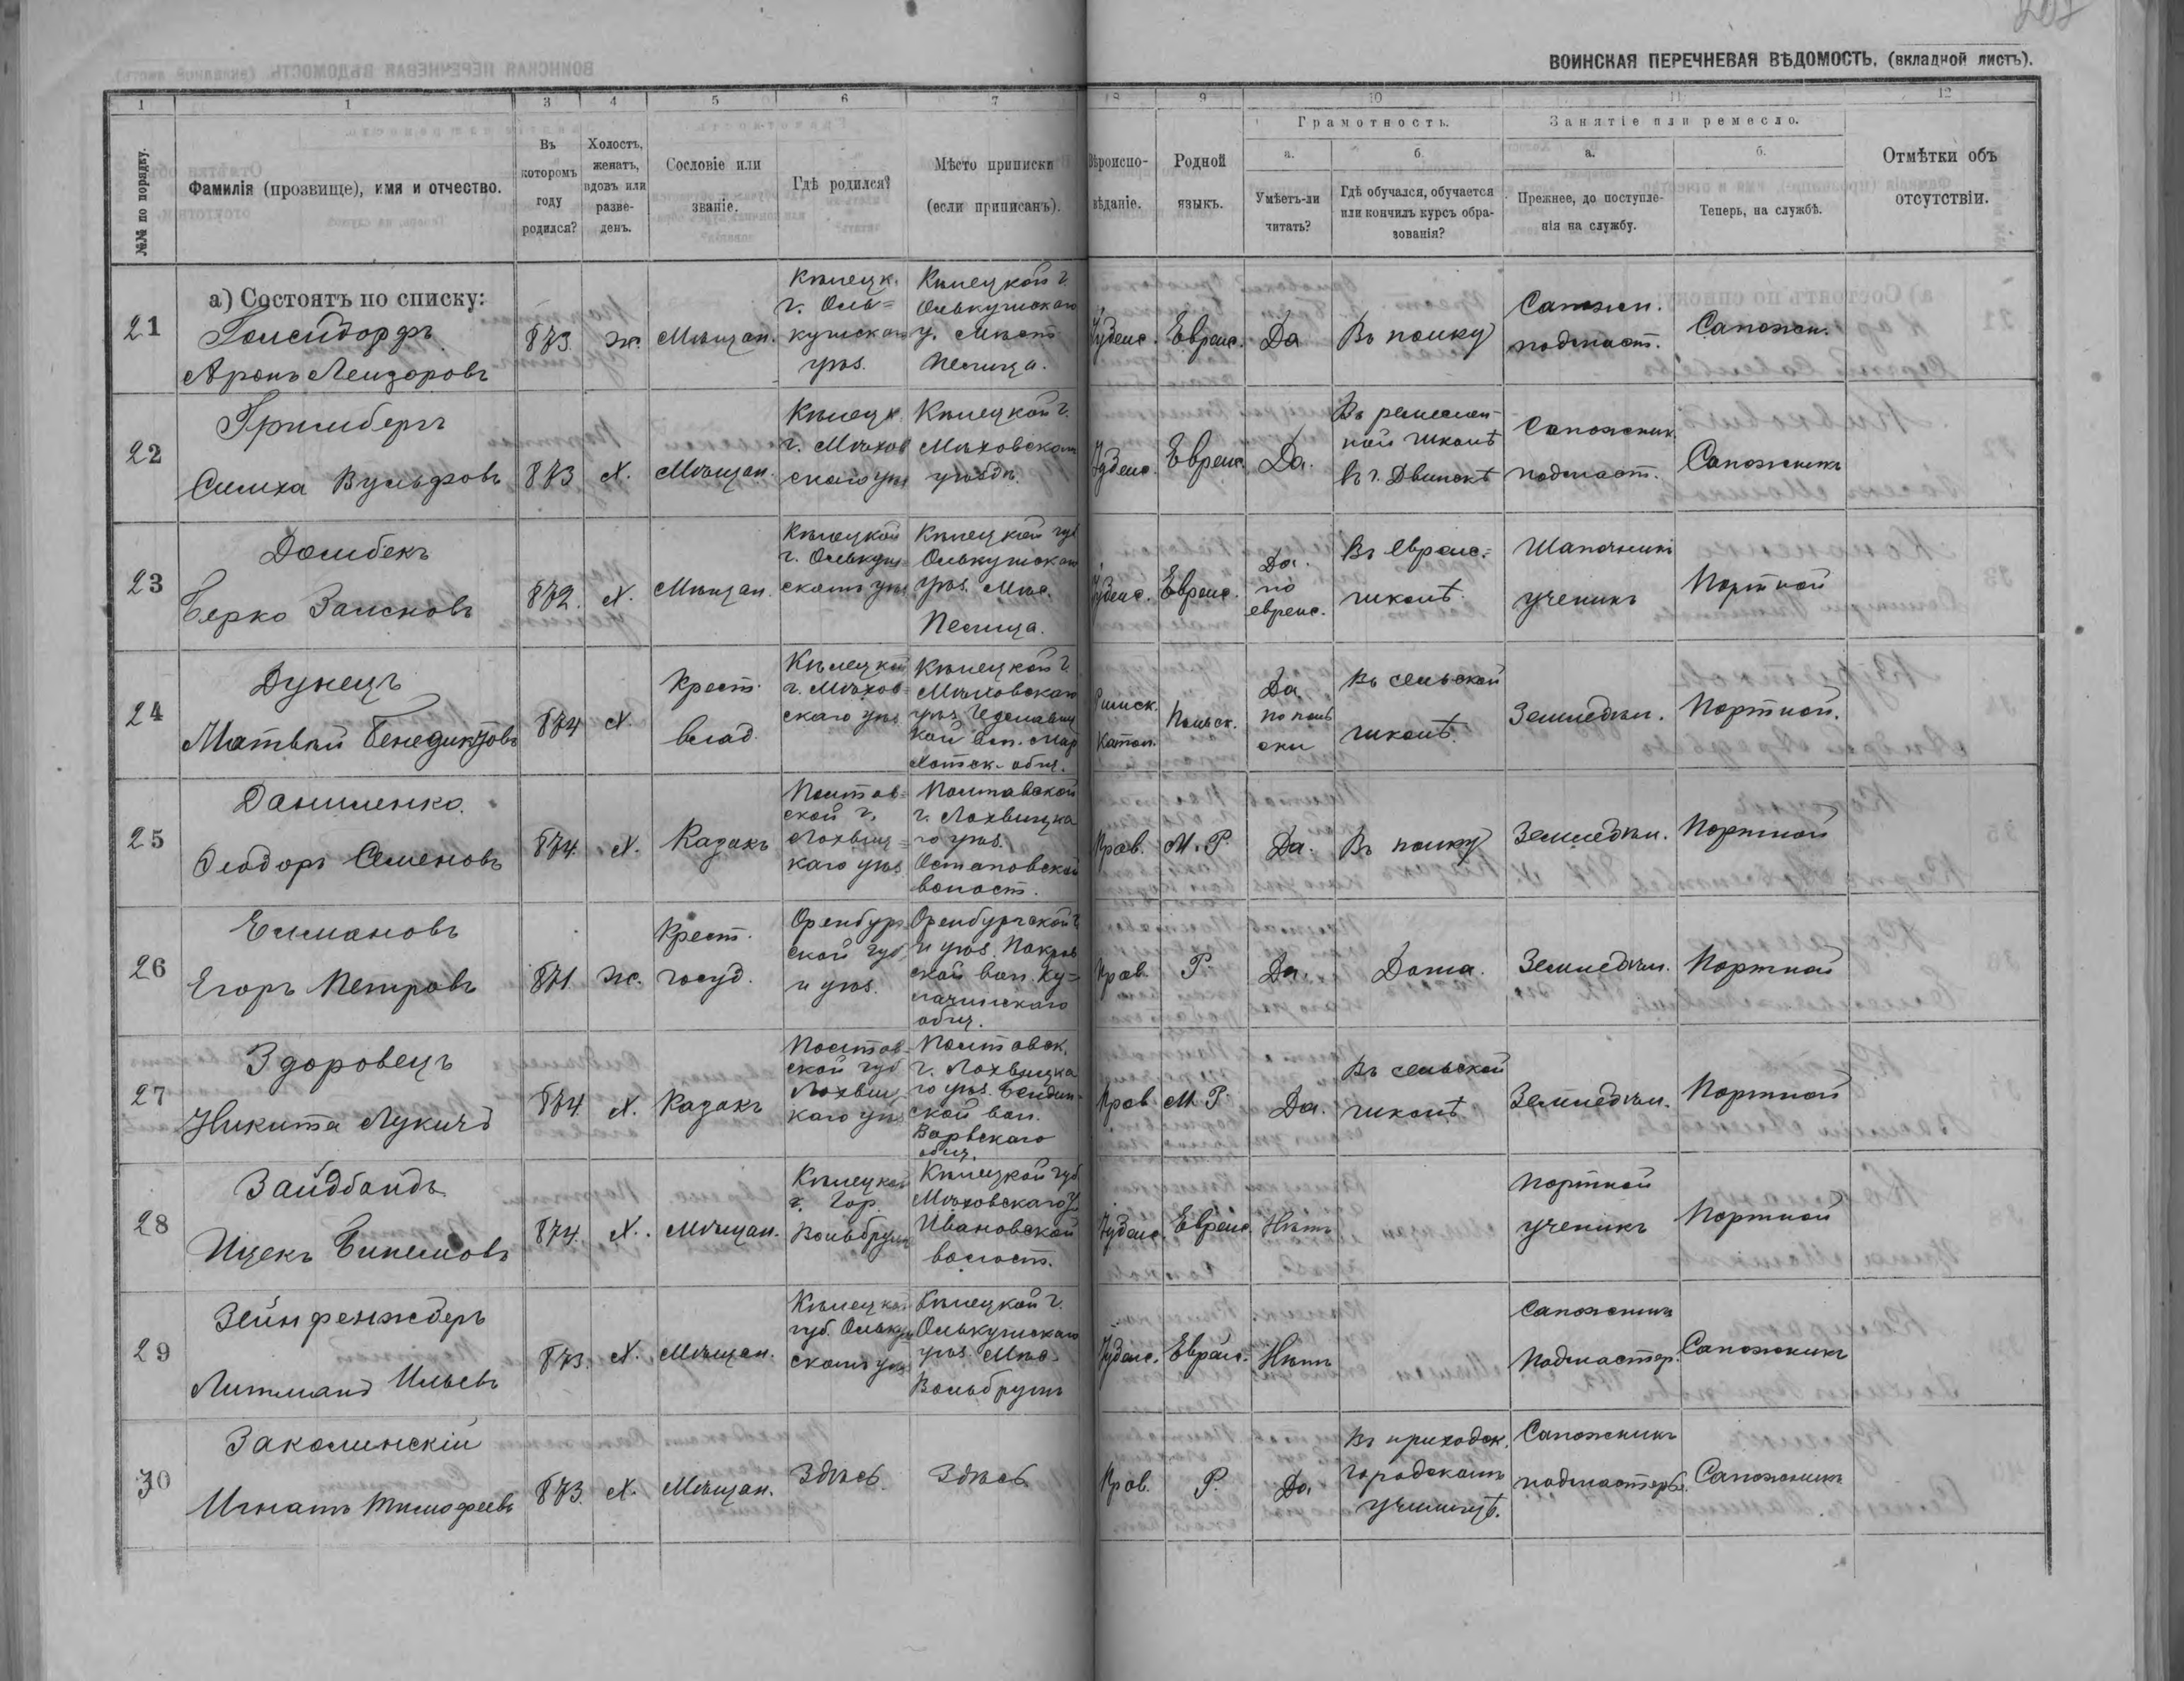 ВОИНСКАЯ ПЕРЕЧНЕВАЯ ВѢДОМОСТЬ, (вкладной листъ).
1 1 3 4 5 6 7 8 9 10 11 12
№№ по порядку.
Фамилія (прозвище), имя и отчество.
Въ которомъ году родился?
Холостъ, женатъ, вдовъ или разве-денъ.
Сословіе или званіе.
Гдѣ родился?
Мѣсто приписки (если приписанъ).
Вѣроиспо-вѣданіе.
Родной языкъ.
Грамотность.
а. Умѣетъ-ли читать?
б. Гдѣ обучался, обучается или кончилъ курсъ обра-зованія?
Занятіе или ремесло.
а. Прежнее, до поступле-нія на службу.
б. Теперь, на службѣ.
Отмѣтки объ отсутствіи.
а) Состоятъ по списку:
21 Аронъ 873 ж. Мѣщан. Кѣлецк. г. Оль=кушскаго уѣз. Кѣлецкой г. Олькушскаго у. Мѣст. Іудейс. Еврейс. Да Въ полку Сапожн. подмаст. Сапожн.
22 Гримбергъ Симха Вульфовъ 873 х. Мѣщан. Кѣлецк. г. Мѣхов скаго уѣз Кѣлецкой г. Мѣховскаго уѣзда. Іудейс. Еврейс. Да. Въ ремеслен-ной школѣ въ г. Двинскѣ Сапожник. подмаст. Сапожникъ
23 Домбекъ Берко 872. х. Мѣщан. Кѣлецкой г. Олькуш=скаго уѣз Кѣлецкой губ Олькушскаго уѣз. Мѣс. Іудейс. Еврейс. Да. по еврейс. Въ еврейс.= школѣ. ученикъ Портной
24 Дунецъ Матвѣй Бенедиктовъ 874 х. Крест. влад. Кѣлецкой г. Мѣхов=скаго уѣз. Кѣлецкой г. Мѣховскаго уѣз. Римск. Катол. Польск. Да. по поль ски Въ сельской школѣ. Земледѣл. Портной.
25 Даниленко. Ѳеодоръ Семеновъ 874. х. Казакъ Полтав=ской г. Лохвиц=каго уѣз Полтавской г. Лохвицка го уѣз. Остаповской волост. Прав. М. Р. Да. Въ полку Земледѣл. Портной
26 Егоръ Петровъ 871. ж. Крест. госуд. Оренбург ской губ. и уѣз. Оренбургской г и уѣз. Покров ской вол. общ. Прав. Р. Да. Дома. Земледѣл. Портной
27 Здоровецъ Никита Лукичъ 874. х. Казакъ Полтав-ской губ Лохвиц-каго уѣз Полтавск. г. Лохвицка го уѣз. ской вол. общ. Прав. М. Р. Да. Въ сельской школѣ Земледѣл. Портной
28 Зайдбандъ Ицекъ 874. х. Мѣщан. Кѣлецкой г. Гор. Вольбрумъ Кѣлецкой губ. Мѣховскаго у. Ивановской волост. Іудейс. Еврейс. Нѣтъ Портной ученикъ Портной
29 Литманъ Ильевъ 873. х. Мѣщан. Кѣлецкой губ. Олькуш скаго уѣз Кѣлецкой г. Олькушскаго уѣз. Мѣс. Вольбрумъ Іудейс. Еврейс. Нѣтъ Сапожникъ Подмастер. Сапожникъ
30 Заколинскій Игнатъ Тимофеевъ 873. х. Мѣщан. Здѣсь. Здѣсь Прав. Р. Да Въ приходск. городскомъ училищѣ. Сапожникъ подмастерье. Сапожникъ